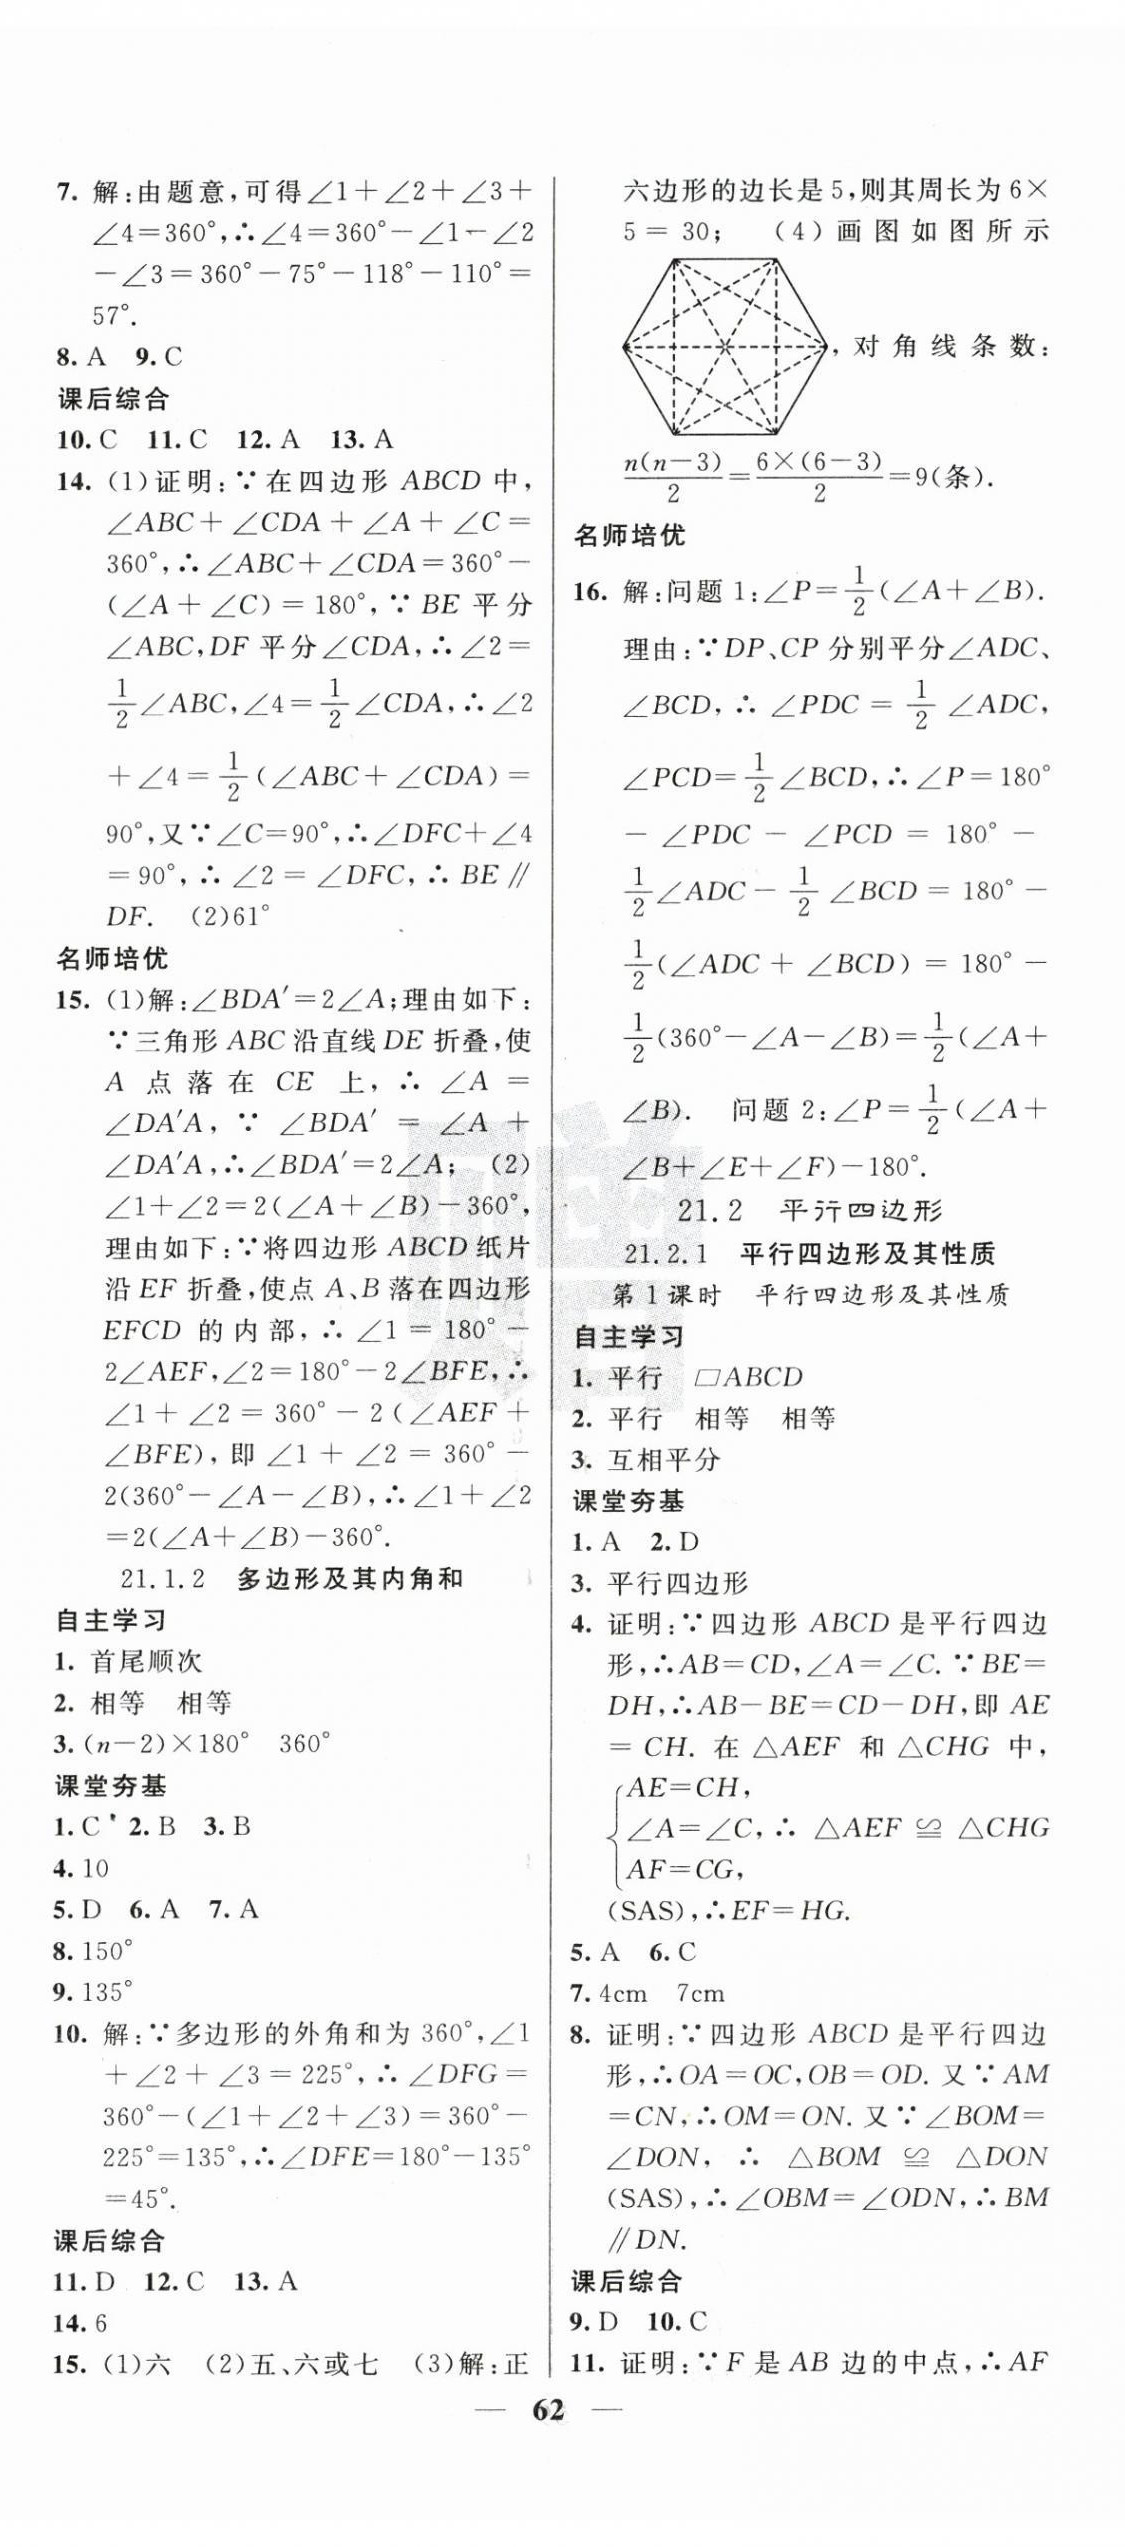 7. 解:由题意,可得∠1+∠2+∠3+
∠4=360°,∴∠4=360°-∠1-∠2
-∠3=360°-75°-118°-110°=
57°.
8. A 9. C
课后综合
10. C 11. C 12. A 13. A
14. (1)证明:∵在四边形 ABCD 中,
∠ABC+∠CDA+∠A+∠C=
360°,∴∠ABC+∠CDA=360°-
(∠A+∠C)=180°,∵BE 平分
∠ABC,DF 平分∠CDA,∴∠2=
1/2∠ABC,∠4=1/2∠CDA,∴∠2
+∠4=1/2(∠ABC+∠CDA)=
90°,又∵∠C=90°,∴∠DFC+∠4
=90°,∴∠2=∠DFC,∴BE∥
DF. (2)61°
名师培优
15. (1)解:∠BDA′=2∠A;理由如下:
∵三角形 ABC 沿直线 DE 折叠,使
A 点落在 CE 上,∴∠A=
∠DA′A,∵∠BDA′=∠A+
∠DA′A,∴∠BDA′=2∠A; (2)
∠1+∠2=2(∠A+∠B)-360°,
理由如下:∵将四边形 ABCD 纸片
沿 EF 折叠,使点 A、B 落在四边形
EFCD 的内部,∴∠1=180°-
2∠AEF,∠2=180°-2∠BFE,∴
∠1+∠2=360°-2(∠AEF+
∠BFE),即∠1+∠2=360°-
2(360°-∠A-∠B),∴∠1+∠2
=2(∠A+∠B)-360°.
21.1.2 多边形及其内角和
自主学习
1. 首尾顺次
2. 相等 相等
3. (n-2)×180° 360°
课堂夯基
1. C 2. B 3. B
4. 10
5. D 6. A 7. A
8. 150°
9. 135°
10. 解:∵多边形的外角和为 360°,∠1
+∠2+∠3=225°,∴∠DFG=
360°-(∠1+∠2+∠3)=360°-
225°=135°,∴∠DFE=180°-135°
=45°.
课后综合
11. D 12. C 13. A
14. 6
15. (1)六 (2)五、六或七 (3)解:正
六边形的边长是 5,则其周长为 6×
5=30; (4)画图如图所示
,对角线条数:
n(n-3)/2=6×(6-3)/2=9(条).
名师培优
16. 解:问题 1:∠P=1/2(∠A+∠B).
理由:∵DP、CP 分别平分∠ADC、
∠BCD,∴∠PDC=1/2∠ADC,
∠PCD=1/2∠BCD,∴∠P=180°
-∠PDC-∠PCD=180°-
1/2∠ADC-1/2∠BCD=180°-
1/2(∠ADC+∠BCD)=180°-
1/2(360°-∠A-∠B)=1/2(∠A+
∠B). 问题 2:∠P=1/2(∠A+
∠B+∠E+∠F)-180°.
21.2 平行四边形
21.2.1 平行四边形及其性质
第 1 课时 平行四边形及其性质
自主学习
1. 平行 ▱ABCD
2. 平行 相等 相等
3. 互相平分
课堂夯基
1. A 2. D
3. 平行四边形
4. 证明:∵四边形 ABCD 是平行四边
形,∴AB=CD,∠A=∠C.∵BE=
DH,∴AB-BE=CD-DH,即 AE
=CH. 在△AEF 和△CHG 中,
AE=CH,
∠A=∠C,∴△AEF≌△CHG
AF=CG,
(SAS),∴EF=HG.
5. A 6. C
7. 4cm 7cm
8. 证明:∵四边形 ABCD 是平行四边
形,∴OA=OC,OB=OD. 又∵AM
=CN,∴OM=ON. 又∵∠BOM=
∠DON,∴△BOM≌△DON
(SAS),∴∠OBM=∠ODN,∴BM
∥DN.
课后综合
9. D 10. C
11. 证明:∵F 是 AB 边的中点,∴AF
— 62 —